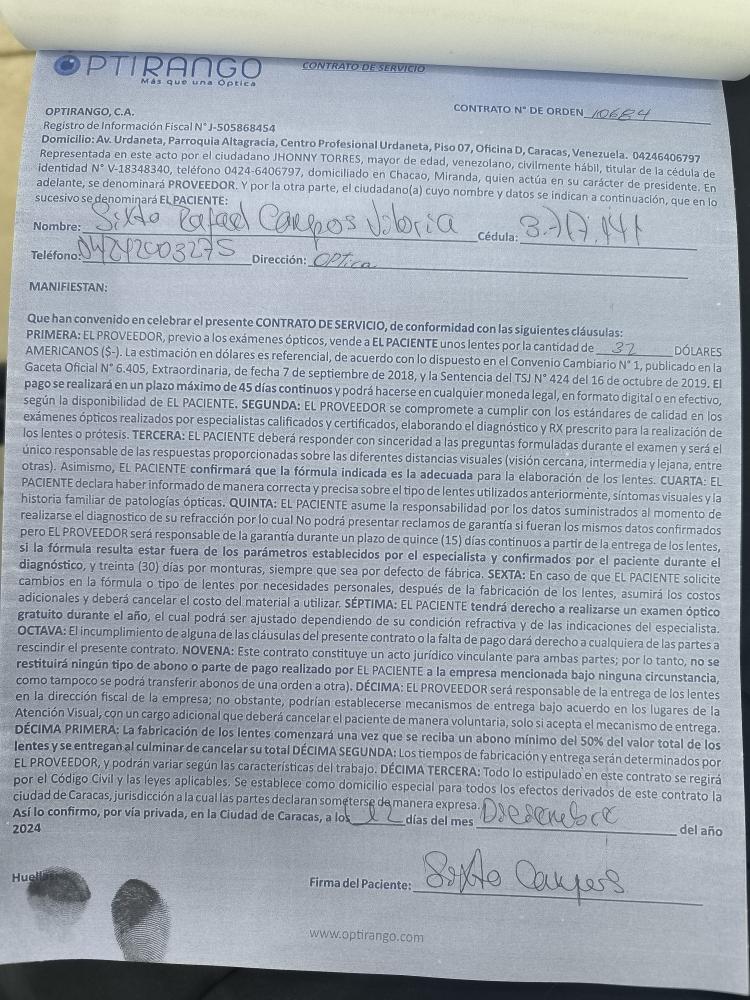 OPTIRANGO
Más que una Óptica
CONTRATO DE SERVICIO
OPTIRANGO, C.A.
CONTRATO N° DE ORDEN 10684
Registro de Información Fiscal N° J-505868454
Domicilio: Av. Urdaneta, Parroquia Altagracia, Centro Profesional Urdaneta, Piso 07, Oficina D, Caracas, Venezuela. 04246406797
Representada en este acto por el ciudadano JHONNY TORRES, mayor de edad, venezolano, civilmente hábil, titular de la cédula de
identidad N° V-18348340, teléfono 0424-6406797, domiciliado en Chacao, Miranda, quien actúa en su carácter de presidente. En
adelante, se denominará PROVEEDOR. Y por la otra parte, el ciudadano(a) cuyo nombre y datos se indican a continuación, que en lo
sucesivo se denominará EL PACIENTE:
Nombre: Sixto Rafael Campos Cédula: 3.717.141
Teléfono: Dirección: OPTica
MANIFIESTAN:
Que han convenido en celebrar el presente CONTRATO DE SERVICIO, de conformidad con las siguientes cláusulas:
PRIMERA: EL PROVEEDOR, previo a los exámenes ópticos, vende a EL PACIENTE unos lentes por la cantidad de 32 DÓLARES
AMERICANOS ($-). La estimación en dólares es referencial, de acuerdo con lo dispuesto en el Convenio Cambiario N° 1, publicado en la
Gaceta Oficial N° 6.405, Extraordinaria, de fecha 7 de septiembre de 2018, y la Sentencia del TSJ N° 424 del 16 de octubre de 2019. El
pago se realizará en un plazo máximo de 45 días continuos y podrá hacerse en cualquier moneda legal, en formato digital o en efectivo,
según la disponibilidad de EL PACIENTE. SEGUNDA: EL PROVEEDOR se compromete a cumplir con los estándares de calidad en los
exámenes ópticos realizados por especialistas calificados y certificados, elaborando el diagnóstico y RX prescrito para la realización de
los lentes o prótesis. TERCERA: EL PACIENTE deberá responder con sinceridad a las preguntas formuladas durante el examen y será el
único responsable de las respuestas proporcionadas sobre las diferentes distancias visuales (visión cercana, intermedia y lejana, entre
otras). Asimismo, EL PACIENTE confirmará que la fórmula indicada es la adecuada para la elaboración de los lentes. CUARTA: EL
PACIENTE declara haber informado de manera correcta y precisa sobre el tipo de lentes utilizados anteriormente, síntomas visuales y la
historia familiar de patologías ópticas. QUINTA: EL PACIENTE asume la responsabilidad por los datos suministrados al momento de
realizarse el diagnostico de su refracción por lo cual No podrá presentar reclamos de garantía si fueran los mismos datos confirmados
pero EL PROVEEDOR será responsable de la garantía durante un plazo de quince (15) días continuos a partir de la entrega de los lentes,
si la fórmula resulta estar fuera de los parámetros establecidos por el especialista y confirmados por el paciente durante el
diagnóstico, y treinta (30) días por monturas, siempre que sea por defecto de fábrica. SEXTA: En caso de que EL PACIENTE solicite
cambios en la fórmula o tipo de lentes por necesidades personales, después de la fabricación de los lentes, asumirá los costos
adicionales y deberá cancelar el costo del material a utilizar. SÉPTIMA: EL PACIENTE tendrá derecho a realizarse un examen óptico
gratuito durante el año, el cual podrá ser ajustado dependiendo de su condición refractiva y de las indicaciones del especialista.
OCTAVA: El incumplimiento de alguna de las cláusulas del presente contrato o la falta de pago dará derecho a cualquiera de las partes a
rescindir el presente contrato. NOVENA: Este contrato constituye un acto jurídico vinculante para ambas partes; por lo tanto, no se
restituirá ningún tipo de abono o parte de pago realizado por EL PACIENTE a la empresa mencionada bajo ninguna circunstancia,
como tampoco se podrá transferir abonos de una orden a otra). DÉCIMA: EL PROVEEDOR será responsable de la entrega de los lentes
en la dirección fiscal de la empresa; no obstante, podrían establecerse mecanismos de entrega bajo acuerdo en los lugares de la
Atención Visual, con un cargo adicional que deberá cancelar el paciente de manera voluntaria, solo si acepta el mecanismo de entrega.
DÉCIMA PRIMERA: La fabricación de los lentes comenzará una vez que se reciba un abono mínimo del 50% del valor total de los
lentes y se entregan al culminar de cancelar su total DÉCIMA SEGUNDA: Los tiempos de fabricación y entrega serán determinados por
EL PROVEEDOR, y podrán variar según las características del trabajo. DÉCIMA TERCERA: Todo lo estipulado en este contrato se regirá
por el Código Civil y las leyes aplicables. Se establece como domicilio especial para todos los efectos derivados de este contrato la
ciudad de Caracas, jurisdicción a la cual las partes declaran someterse de manera expresa.
Así lo confirmo, por vía privada, en la Ciudad de Caracas, a los 12 días del mes del año
2024
Huellas
Firma del Paciente: Sixto Campos
www.optirango.com